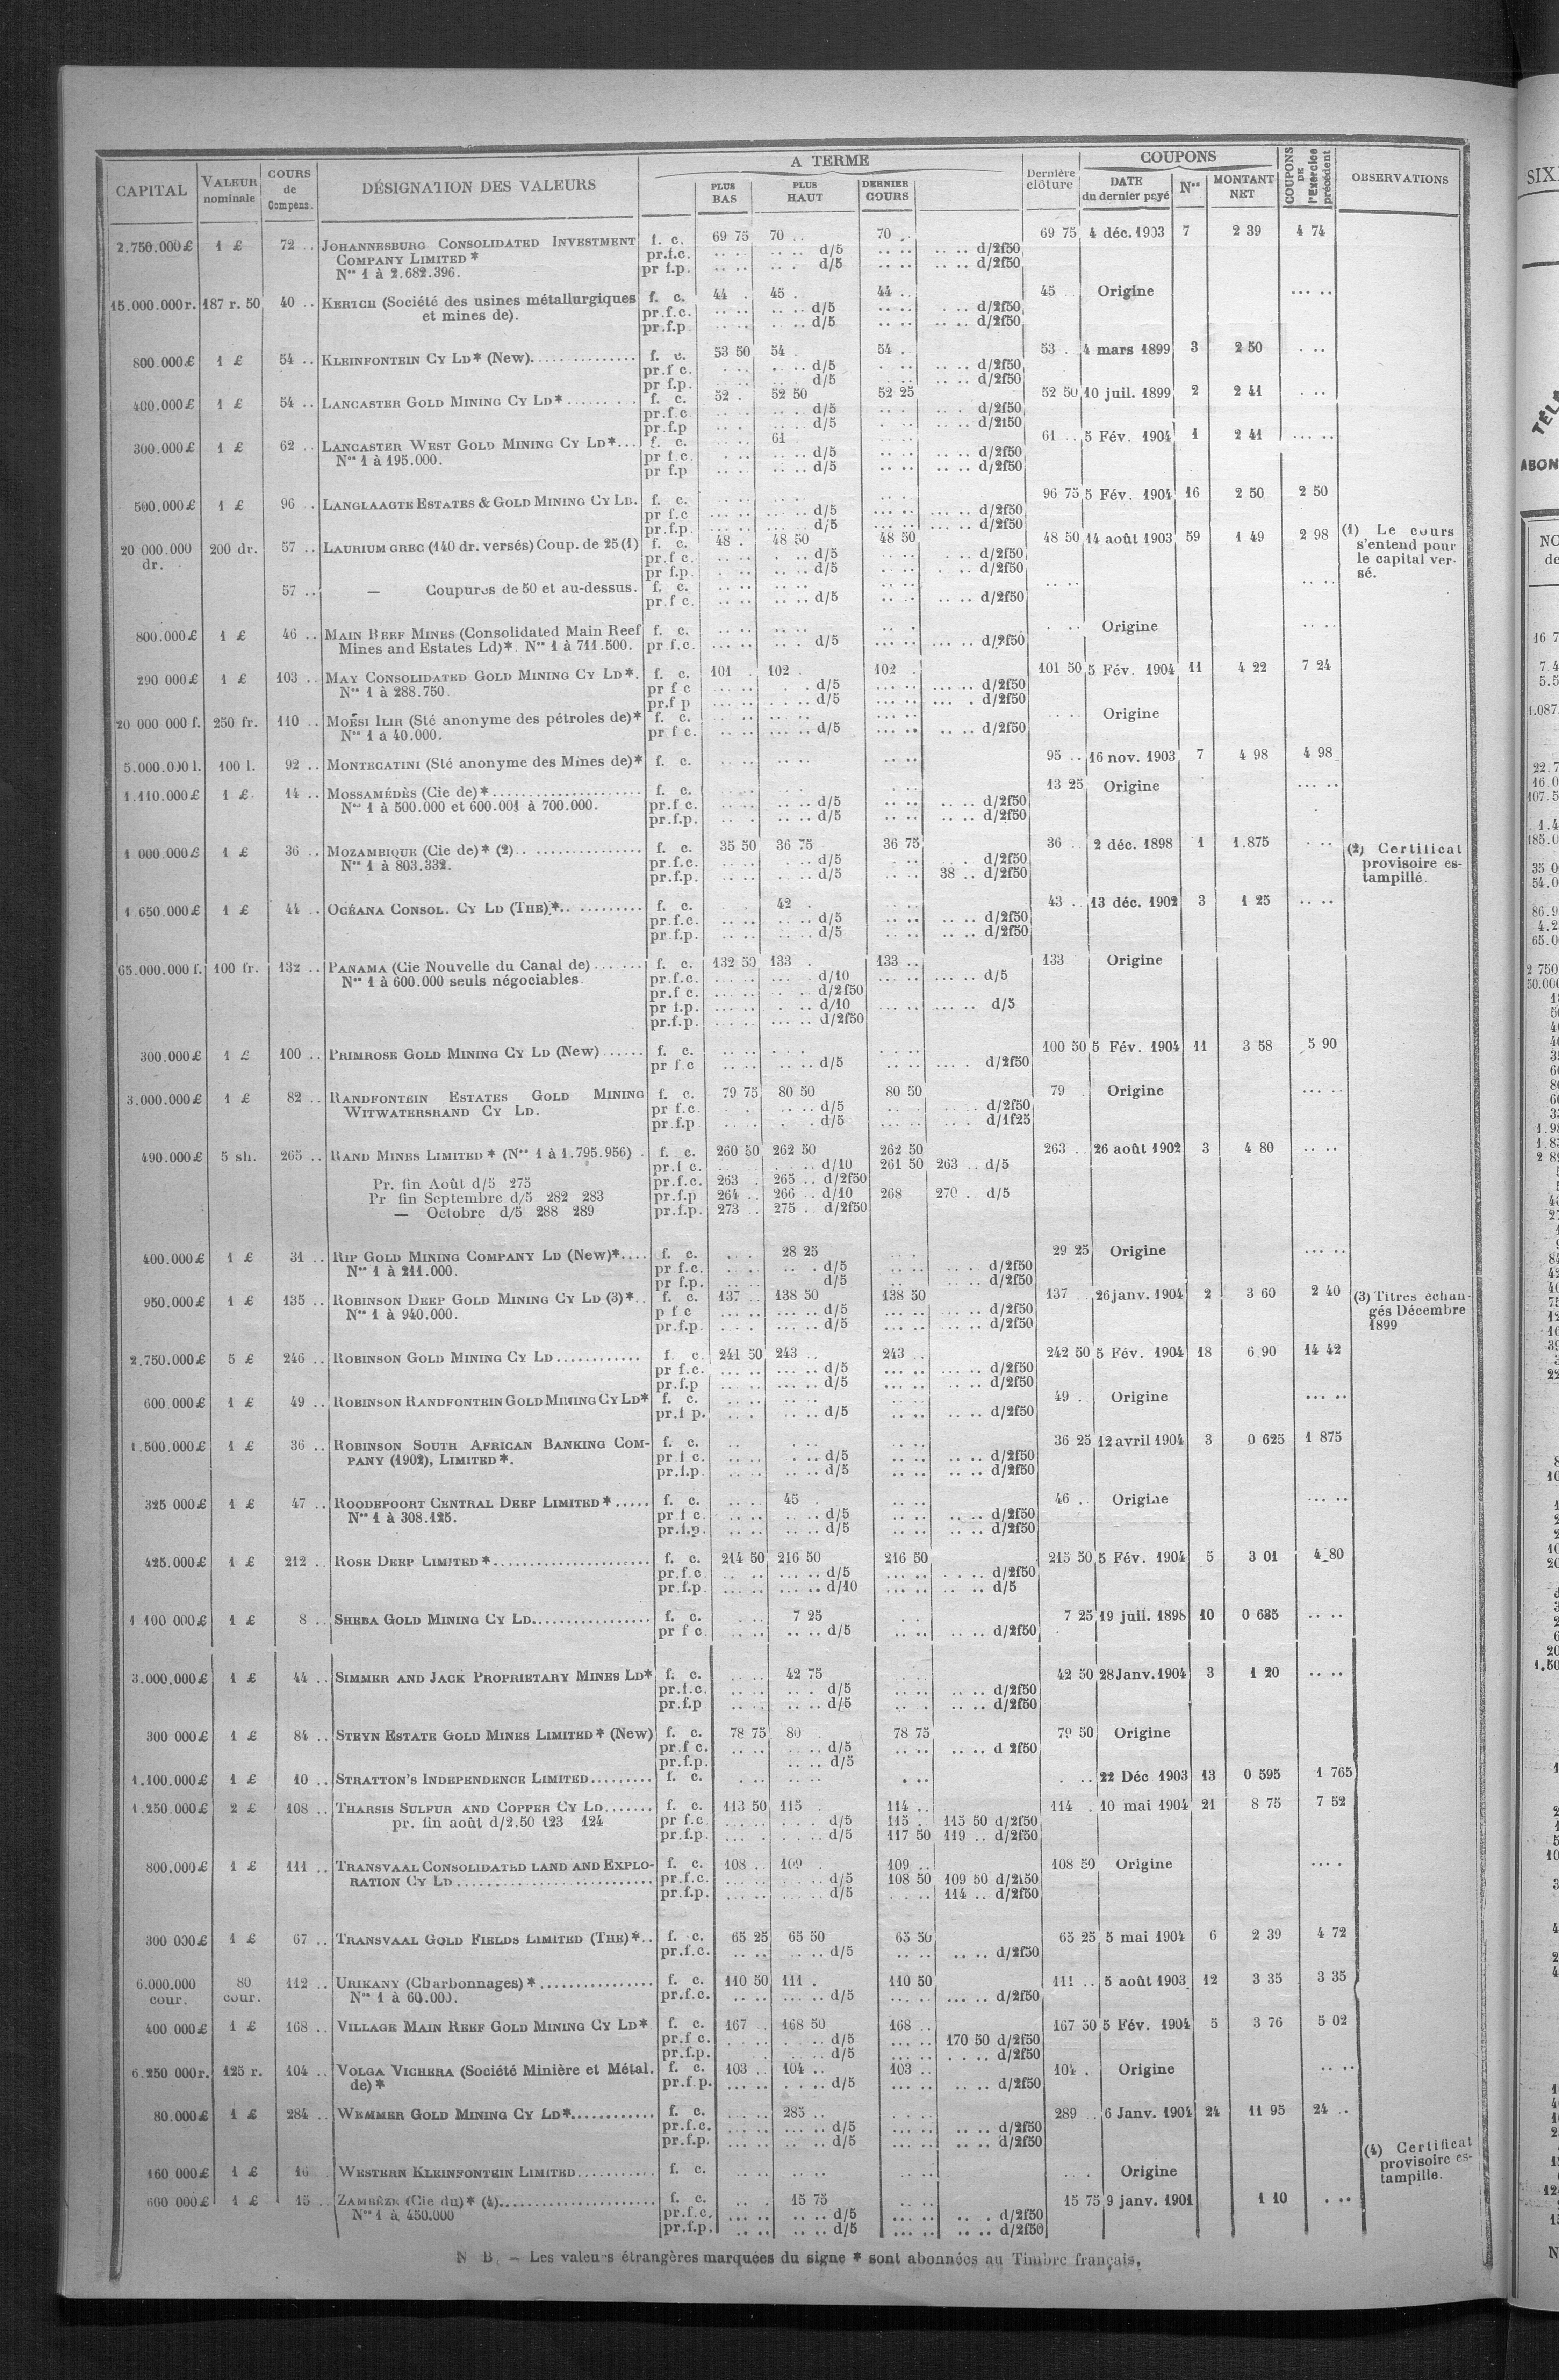 CAPITAL VALEUR nominale COURS de Compens. DÉSIGNATION DES VALEURS A TERME PLUS BAS PLUS HAUT DERNIER COURS Dernière clôture COUPONS DATE du dernier payé Nos MONTANT NET COUPONS DE l'Exercice précédent OBSERVATIONS
2.750.000£ 1 £ 72 .. JOHANNESBURG CONSOLIDATED INVESTMENT f. c. 69 75 70 .. 70 .. 69 75 4 déc. 1903 7 2 39 4 74
COMPANY LIMITED * pr.f.c. d/5 d/2f50
Nos 1 à 2.682.396. pr f.p. d/5 d/2f50
15.000.000r. 187 r. 50 40 .. KERTCH (Société des usines métallurgiques f. c. 44 . 45 . 44 .. 45 .. Origine
et mines de). pr.f.c. d/5 d/2f50
pr.f.p d/5 d/2f50
800.000£ 1 £ 54 .. KLEINFONTEIN CY LD* (New). f. c. 53 50 54 . 54 . 53 . 4 mars 1899 3 2 50
pr.f c. d/5 d/2f50
pr f.p. d/5 d/2f50
400.000£ 1 £ 54 .. LANCASTER GOLD MINING CY LD* f. c. 52 . 52 50 52 25 52 50 10 juil. 1899 2 2 41
pr.f.c d/5 d/2f50
pr.f.p d/5 d/2f50
300.000£ 1 £ 62 .. LANCASTER WEST GOLD MINING CY LD*... f. c. 61 61 .. 5 Fév. 1904 1 2 41
Nos 1 à 195.000. pr f.c. d/5 d/2f50
pr f.p d/5 d/2f50
500.000£ 1 £ 96 .. LANGLAAGTE ESTATES & GOLD MINING CY LD. f. c. 96 75 5 Fév. 1904 16 2 50 2 50
pr f.c d/5 d/2f50
pr.f.p. d/5 d/2f50
20 000.000 dr. 200 dr. 57 .. LAURIUM GREC (140 dr. versés) Coup. de 25 (1) f. c. 48 . 48 50 48 50 48 50 14 août 1903 59 1 49 2 98 (1) Le cours s'entend pour le capital versé.
pr.f c. d/5 d/2f50
pr f.p. d/5 d/2f50
57 .. — Coupures de 50 et au-dessus. f. c.
pr.f c. d/5 d/2f50
800.000£ 1 £ 46 .. MAIN REEF MINES (Consolidated Main Reef f. c. Origine
Mines and Estates Ld)*. Nos 1 à 711.500. pr.f.c. d/5 d/2f50
290 000£ 1 £ 103 .. MAY CONSOLIDATED GOLD MINING CY LD*. f. c. 101 . 102 . 102 . 101 50 5 Fév. 1904 11 4 22 7 24
Nos 1 à 288.750. pr f c d/5 d/2f50
pr.f p d/5 d/2f50
20 000 000 f. 250 fr. 110 .. MOËSI ILIR (Sté anonyme des pétroles de)* f. c. Origine
Nos 1 à 40.000. pr f c. d/5 d/2f50
5.000.000 l. 100 l. 92 .. MONTECATINI (Sté anonyme des Mines de)* f. c. 95 .. 16 nov. 1903 7 4 98 4 98
1.110.000£ 1 £ 14 .. MOSSAMÉDÈS (Cie de)* f. c. 13 25 Origine
Nos 1 à 500.000 et 600.001 à 700.000. pr.f c. d/5 d/2f50
pr.f.p. d/5 d/2f50
1 000.000£ 1 £ 36 .. MOZAMBIQUE (Cie de)* (2) f. c. 35 50 36 75 36 75 36 .. 2 déc. 1898 1 1.875 (2) Certificat provisoire estampillé.
Nos 1 à 803.332. pr.f.c. d/5 d/2f50
pr.f.p. d/5 38 .. d/2f50
1 650.000£ 1 £ 44 .. OCÉANA CONSOL. CY LD (THE).* f. c. 42 . 43 .. 13 déc. 1902 3 1 25
pr.f.c. d/5 d/2f50
pr.f.p. d/5 d/2f50
65.000.000 f. 100 fr. 132 .. PANAMA (Cie Nouvelle du Canal de) f. c. 132 50 133 . 133 .. 133 Origine
Nos 1 à 600.000 seuls négociables. pr.f.c. d/10 d/5
pr.f c. d/2f50
pr f.p. d/10 d/5
pr.f.p. d/2f50
300.000£ 1 £ 100 .. PRIMROSE GOLD MINING CY LD (New) f. c. 100 50 5 Fév. 1904 11 3 58 5 90
pr f.c d/5 d/2f50
3.000.000£ 1 £ 82 .. RANDFONTEIN ESTATES GOLD MINING f. c. 79 75 80 50 80 50 79 . Origine
WITWATERSRAND CY LD. pr f.c. d/5 d/2f50
pr.f.p d/5 d/1f25
490.000£ 5 sh. 265 .. RAND MINES LIMITED * (Nos 1 à 1.795.956) . f. c. 260 50 262 50 262 50 263 .. 26 août 1902 3 4 80
pr.f c. d/10 261 50 263 .. d/5
Pr. fin Août d/5 275 pr.f.c. 263 . 265 .. d/2f50
Pr fin Septembre d/5 282 283 pr.f.p 264 .. 266 .. d/10 268 270 .. d/5
— Octobre d/5 288 289 pr.f.p. 273 .. 275 . d/2f50
400.000£ 1 £ 31 .. RIP GOLD MINING COMPANY LD (New)*.... f. c. 28 25 29 25 Origine
Nos 1 à 211.000. pr f.c. d/5 d/2f50
pr f.p. d/5 d/2f50
950.000£ 1 £ 135 .. ROBINSON DEEP GOLD MINING CY LD (3)*.. f. c. 137 .. 138 50 138 50 137 .. 26 janv. 1904 2 3 60 2 40 (3) Titres échangés Décembre 1899
Nos 1 à 940.000. p f c d/5 d/2f50
pr.f.p. d/5 d/2f50
2.750.000£ 5 £ 246 .. ROBINSON GOLD MINING CY LD f. c. 241 50 243 .. 243 .. 242 50 5 Fév. 1904 18 6.90 14 42
pr f.c. d/5 d/2f50
pr.f.p d/5 d/2f50
600.000£ 1 £ 49 .. ROBINSON RANDFONTEIN GOLD MINING CY LD* f. c. 49 .. Origine
pr.f p. d/5 d/2f50
1.500.000£ 1 £ 36 .. ROBINSON SOUTH AFRICAN BANKING COM- f. c. 36 25 12 avril 1904 3 0 625 1 875
PANY (1902), LIMITED*. pr.f c. d/5 d/2f50
pr.f.p. d/5 d/2f50
325 000£ 1 £ 47 .. ROODEPOORT CENTRAL DEEP LIMITED*..... f. c. 45 . 46 . Origine
Nos 1 à 308.125. pr f c. d/5 d/2f50
pr.f.p. d/5 d/2f50
425.000£ 1 £ 212 .. ROSE DEEP LIMITED* f. c. 214 50 216 50 216 50 215 50 5 Fév. 1904 5 3 01 4 80
pr.f.c d/5 d/2f50
pr.f.p. d/10 d/5
1 100 000£ 1 £ 8 .. SHEBA GOLD MINING CY LD. f. c. 7 25 7 25 19 juil. 1898 10 0 635
pr f c. d/5 d/2f50
3.000.000£ 1 £ 44 .. SIMMER AND JACK PROPRIETARY MINES LD* f. c. 42 75 42 50 28 Janv. 1904 3 1 20
pr.f.c. d/5 d/2f50
pr.f.p d/5 d/2f50
300 000£ 1 £ 84 .. STEYN ESTATE GOLD MINES LIMITED* (New) f. c. 78 75 80 . 78 75 79 50 Origine
pr.f c. d/5 d 2f50
pr.f.p. d/5
1.100.000£ 1 £ 10 .. STRATTON'S INDEPENDENCE LIMITED f. c. 22 Déc 1903 13 0 595 1 765
1.250.000£ 2 £ 108 .. THARSIS SULFUR AND COPPER CY LD f. c. 113 50 115 . 114 .. 114 . 10 mai 1904 21 8 75 7 52
pr. fin août d/2.50 123 124 pr f.c. d/5 115 . 115 50 d/2f50
pr.f.p. d/5 117 50 119 .. d/2f50
800.000£ 1 £ 111 .. TRANSVAAL CONSOLIDATED LAND AND EXPLO- f. c. 108 .. 109 . 109 .. 108 50 Origine
RATION CY LD pr.f.c. d/5 108 50 109 50 d/2f50
pr.f.p. d/5 114 .. d/2f50
300 000£ 1 £ 67 .. TRANSVAAL GOLD FIELDS LIMITED (THE)*.. f. c. 65 25 65 50 65 50 65 25 5 mai 1904 6 2 39 4 72
pr.f.c. d/5 d/2f50
6.000.000 cour. 80 cour. 112 .. URIKANY (Charbonnages)* f. c. 110 50 111 . 110 50 111 .. 5 août 1903 12 3 35 3 35
Nos 1 à 60.000. pr.f.c. d/5 d/2f50
400 000£ 1 £ 168 .. VILLAGE MAIN REEF GOLD MINING CY LD* f. c. 167 .. 168 50 168 .. 167 50 5 Fév. 1904 5 3 76 5 02
pr.f c. d/5 170 50 d/2f50
pr.f.p. d/5 d/2f50
6.250 000r. 125 r. 104 .. VOLGA VICHERA (Société Minière et Métal. f. c. 103 .. 104 .. 103 .. 104 . Origine
de)* pr.f.p. d/5 d/2f50
80.000£ 1 £ 284 .. WEMMER GOLD MINING CY LD* f. c. 285 .. 289 .. 6 Janv. 1904 24 11 95 24 ..
pr.f.c. d/5 d/2f50
pr.f.p. d/5 d/2f50
160 000£ 1 £ 16 WESTERN KLEINFONTEIN LIMITED f. c. Origine (4) Certificat provisoire estampille.
600 000£ 1 £ 15 .. ZAMBÈZE (Cie du)* (4) f. c. 15 75 15 75 9 janv. 1901 1 10
Nos 1 à 450.000 pr.f.c. d/5 d/2f50
pr.f.p. d/5 d/2f50
N B. — Les valeurs étrangères marquées du signe * sont abonnées au Timbre français.